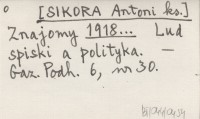 [SIKORA Antoni ks.]
Znajomy 1918... Lud
spiski a polityka. —
Gaz. Podh. 6, nr 30.